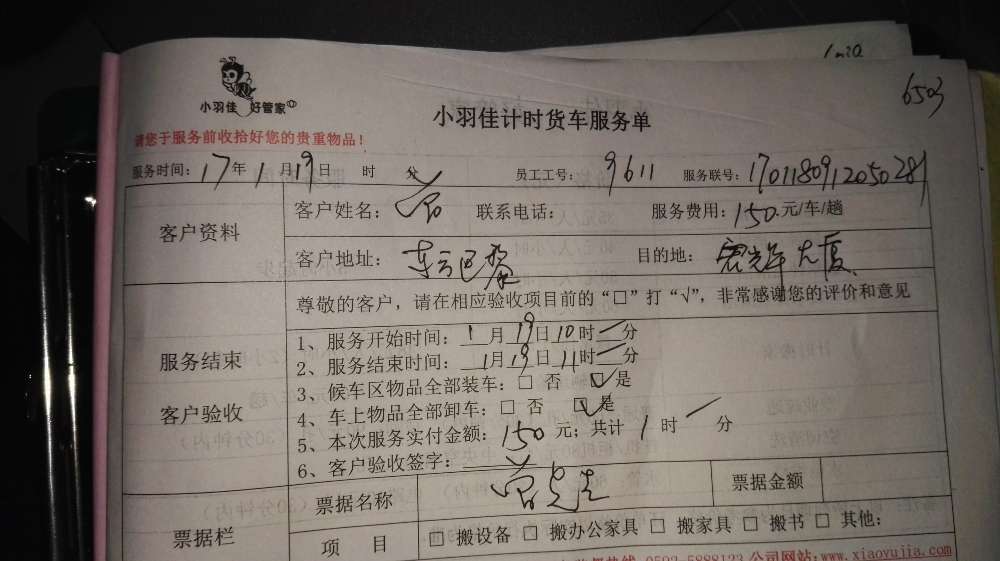 6503
小羽佳 好管家
小羽佳计时货车服务单
请您于服务前收拾好您的贵重物品！
服务时间：17年1月19日 时 分 员工工号：9611 服务联号：1701180912050281
客户资料
客户姓名： 联系电话： 服务费用：150元/车/趟
客户地址：东方巴黎 目的地：宏光年大厦
尊敬的客户，请在相应验收项目前的“□”打“√”，非常感谢您的评价和意见
服务结束
客户验收
1、服务开始时间：1月19日10时 分
2、服务结束时间：1月19日11时 分
3、候车区物品全部装车：□ 否 □ 是
4、车上物品全部卸车：□ 否 □ 是
5、本次服务实付金额：150元；共计1时 分
6、客户验收签字：
票据栏
票据名称 票据金额
项 目 □ 搬设备 □ 搬办公家具 □ 搬家具 □ 搬书 □ 其他：
0592-5888123 公司网站：www.xiaoyujia.com